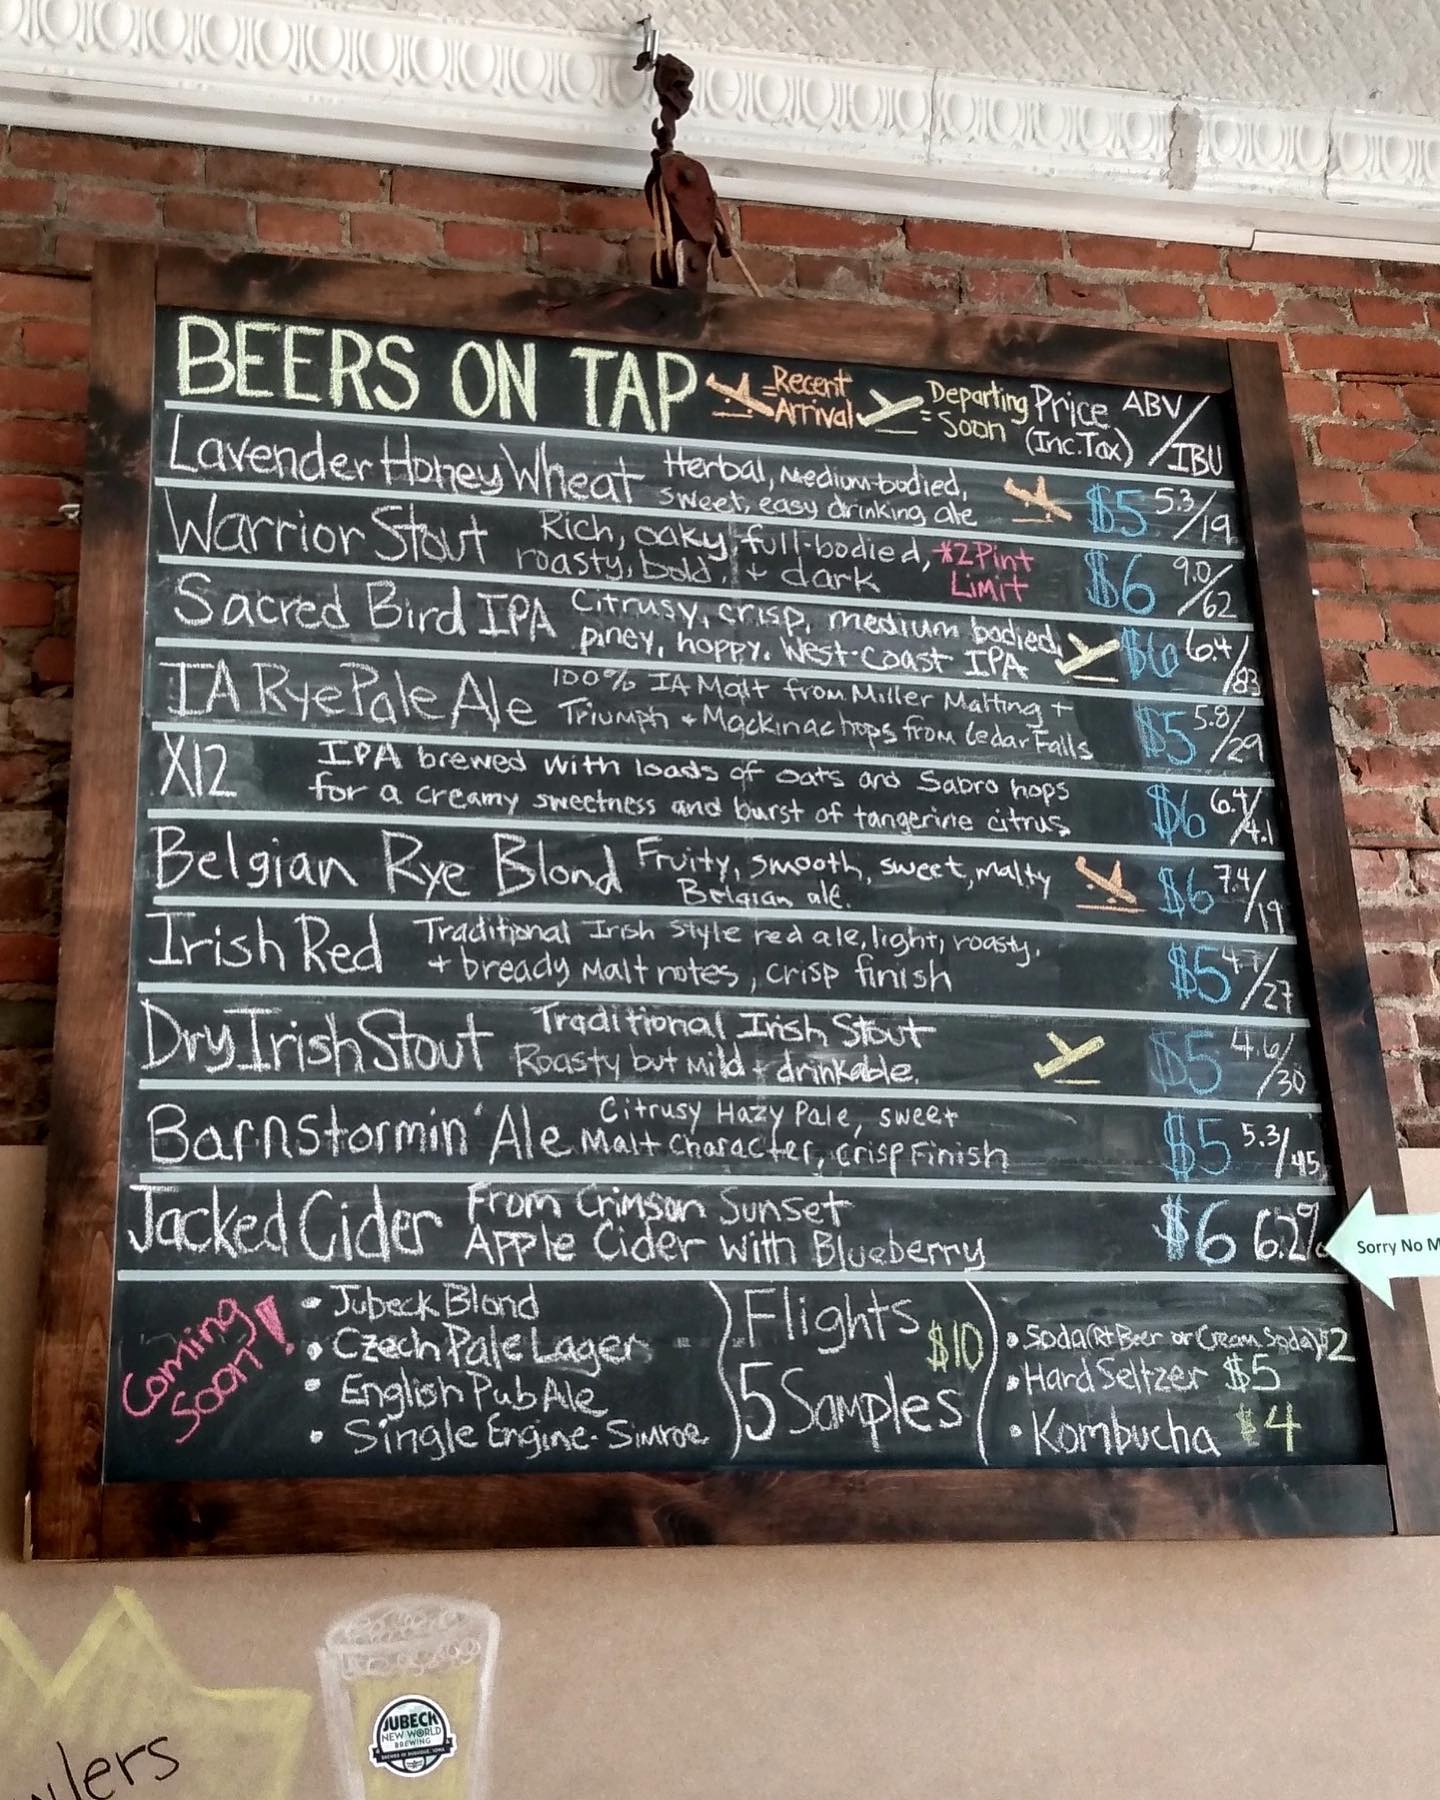 BEERS ON TAP =Recent Arrival =Departing Soon Price (Inc.Tax) ABV/IBU
Lavender Honey Wheat Herbal, medium-bodied, $5 5.3/19
sweet, easy drinking ale
Warrior Stout Rich, oaky, full-bodied, *2 Pint $6 9.0/62
roasty, bold, + dark Limit
Sacred Bird IPA Citrusy, crisp, medium bodied, $6 6.4/83
piney, hoppy. West-Coast IPA
IA Rye Pale Ale 100% IA Malt from Miller Malting + $5 5.8/29
Triumph + Mackinac hops from Cedar Falls
X12 IPA brewed with loads of oats and Sabro hops $6
for a creamy sweetness and burst of tangerine citrus
Belgian Rye Blond Fruity, smooth, sweet, malty $6 7.4/19
Belgian ale.
Irish Red Traditional Irish style red ale, light, roasty, $5 4.7/27
+ bready Malt notes, crisp finish
Dry Irish Stout Traditional Irish Stout $5 4.6/30
Roasty but Mild + drinkable.
Barnstormin' Ale Citrusy Hazy Pale, sweet $5 5.3/45
Malt Character, crisp Finish
Jacked Cider From Crimson Sunset $6 6.2%
Apple Cider with Blueberry
Sorry No M
Coming
Soon!
• Jubeck Blond
• Czech Pale Lager
• English Pub Ale
• Single Engine-Simcoe
Flights $10
5 Samples
• Soda (Rt Beer or Cream Soda) $2
• Hard Seltzer $5
• Kombucha $4
JUBECK
NEW WORLD
BREWING
BREWED IN DUBUQUE, IOWA
wlers